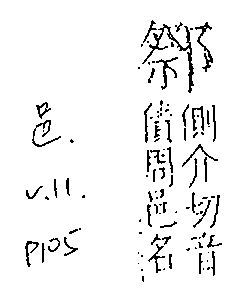 側介切音
債周邑名
邑.
v.11.
p105